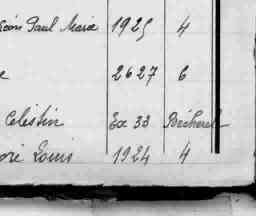 Paul Marie 1925 4
e 2627 6
Celestin Ex 33 Bécherel
Louis 1924 4